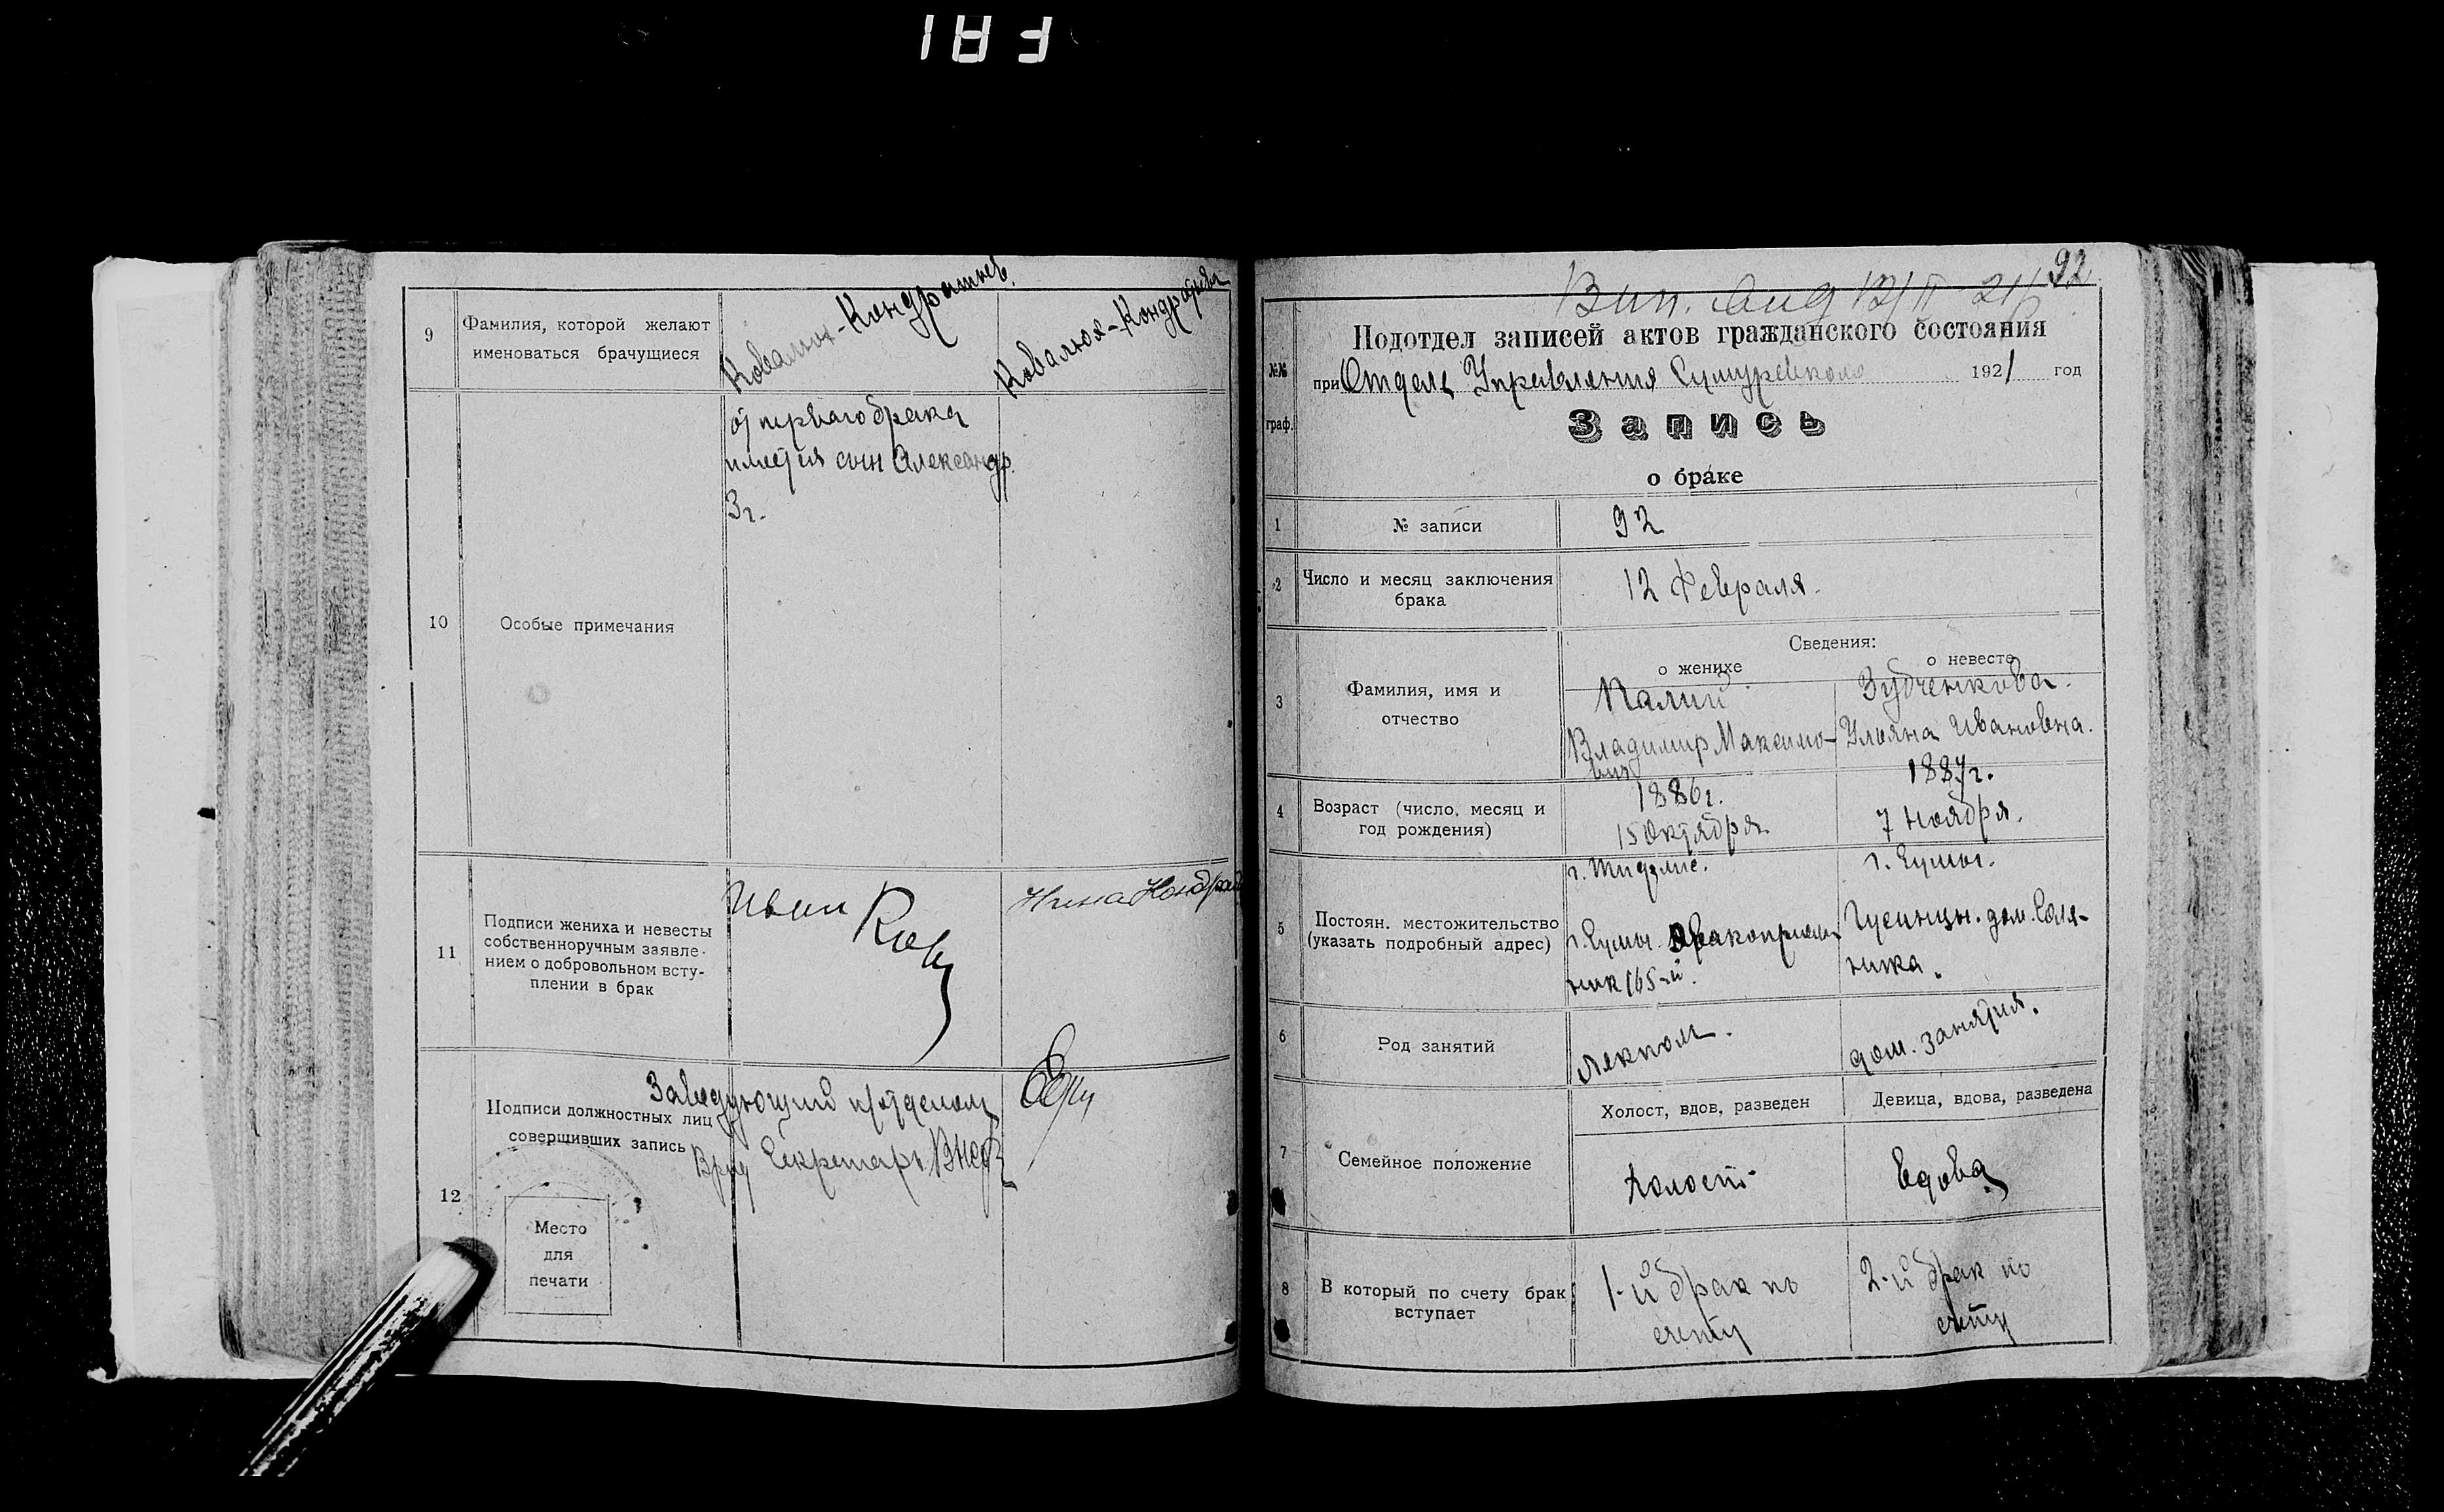 9
Фамилия, которой желают
именоваться брачущиеся
Ковалюх-Кондратьев.
Ковалюх-Кондратьева
10
Особые примечания
от перваго брака
имеется сын Александр.
3 г.
11
Подписи жениха и невесты
собственноручным заявле-
нием о добровольном всту-
плении в брак
Иван
Нина Кондрат
12
Подписи должностных лиц
совершивших запись
Заведующий п/отделом
Врид Секретарь
Место
для
печати
92
Вип.
Подотдел записей актов гражданского состояния
при Отделе Управления Сумуревкома 1921 год
№№
граф.
Запись
о браке
1
№ записи
92
2
Число и месяц заключения
брака
12 Февраля.
Сведения:
о женихе
о невесте
3
Фамилия, имя и
отчество
Палий
Владимир Максимо-
вич
Зубченкова.
Ульяна Ивановна.
4
Возраст (число, месяц и
год рождения)
1886 г.
15 Октября
1887 г.
7 ноября.
5
Постоян. местожительство
(указать подробный адрес)
г. Сумы.
ник 165-й.
г. Сумы.
дом. Соля-
ника.
6
Род занятий
лекпом.
дом. занятия.
7
Семейное положение
Холост, вдов, разведен
Девица, вдова, разведена
холост.
вдова
8
В который по счету брак
вступает
1-й брак по
счету
2-й брак по
счету